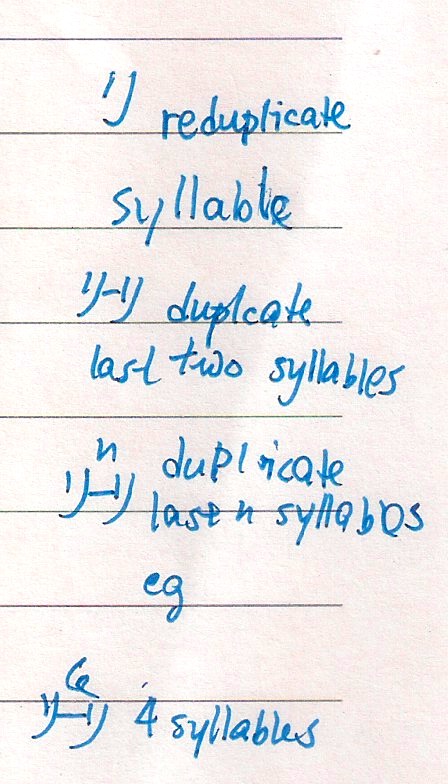 reduplicate
syllable
duplcate
last two syllables
n duplicate
last n syllabos
eg
4 syllables